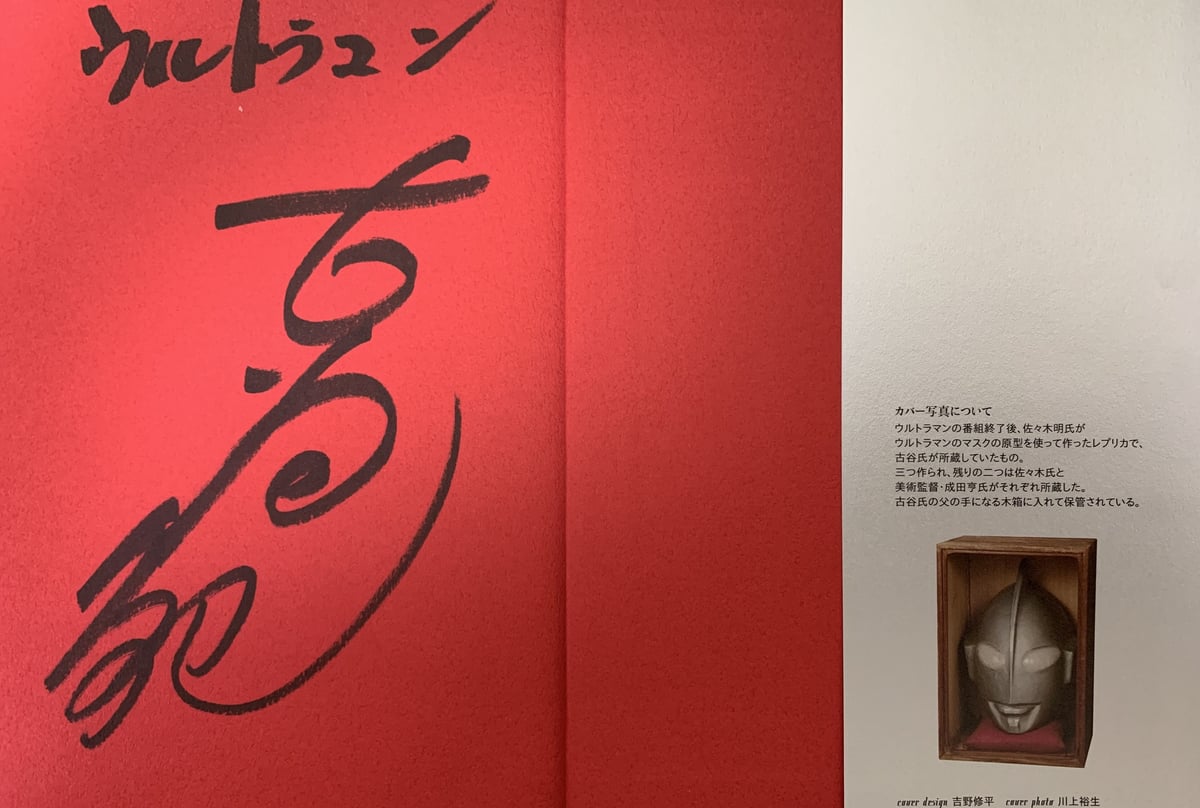 ウルトラマン
古谷敏
カバー写真について
ウルトラマンの番組終了後、佐々木明氏が
ウルトラマンのマスクの原型を使って作ったレプリカで、
古谷氏が所蔵していたもの。
三つ作られ、残りの二つは佐々木氏と
美術監督・成田亨氏がそれぞれ所蔵した。
古谷氏の父の手になる木箱に入れて保管されている。
cover design 吉野修平 cover photo 川上裕生